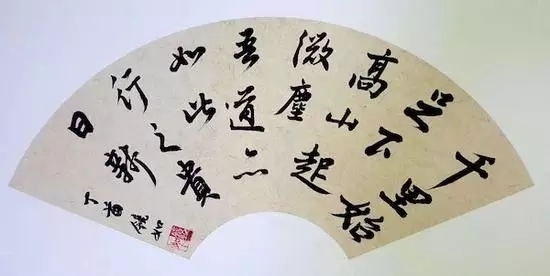 千里始
足下
高山起
微塵
吾道亦
如此
行之貴
日新
丁酉